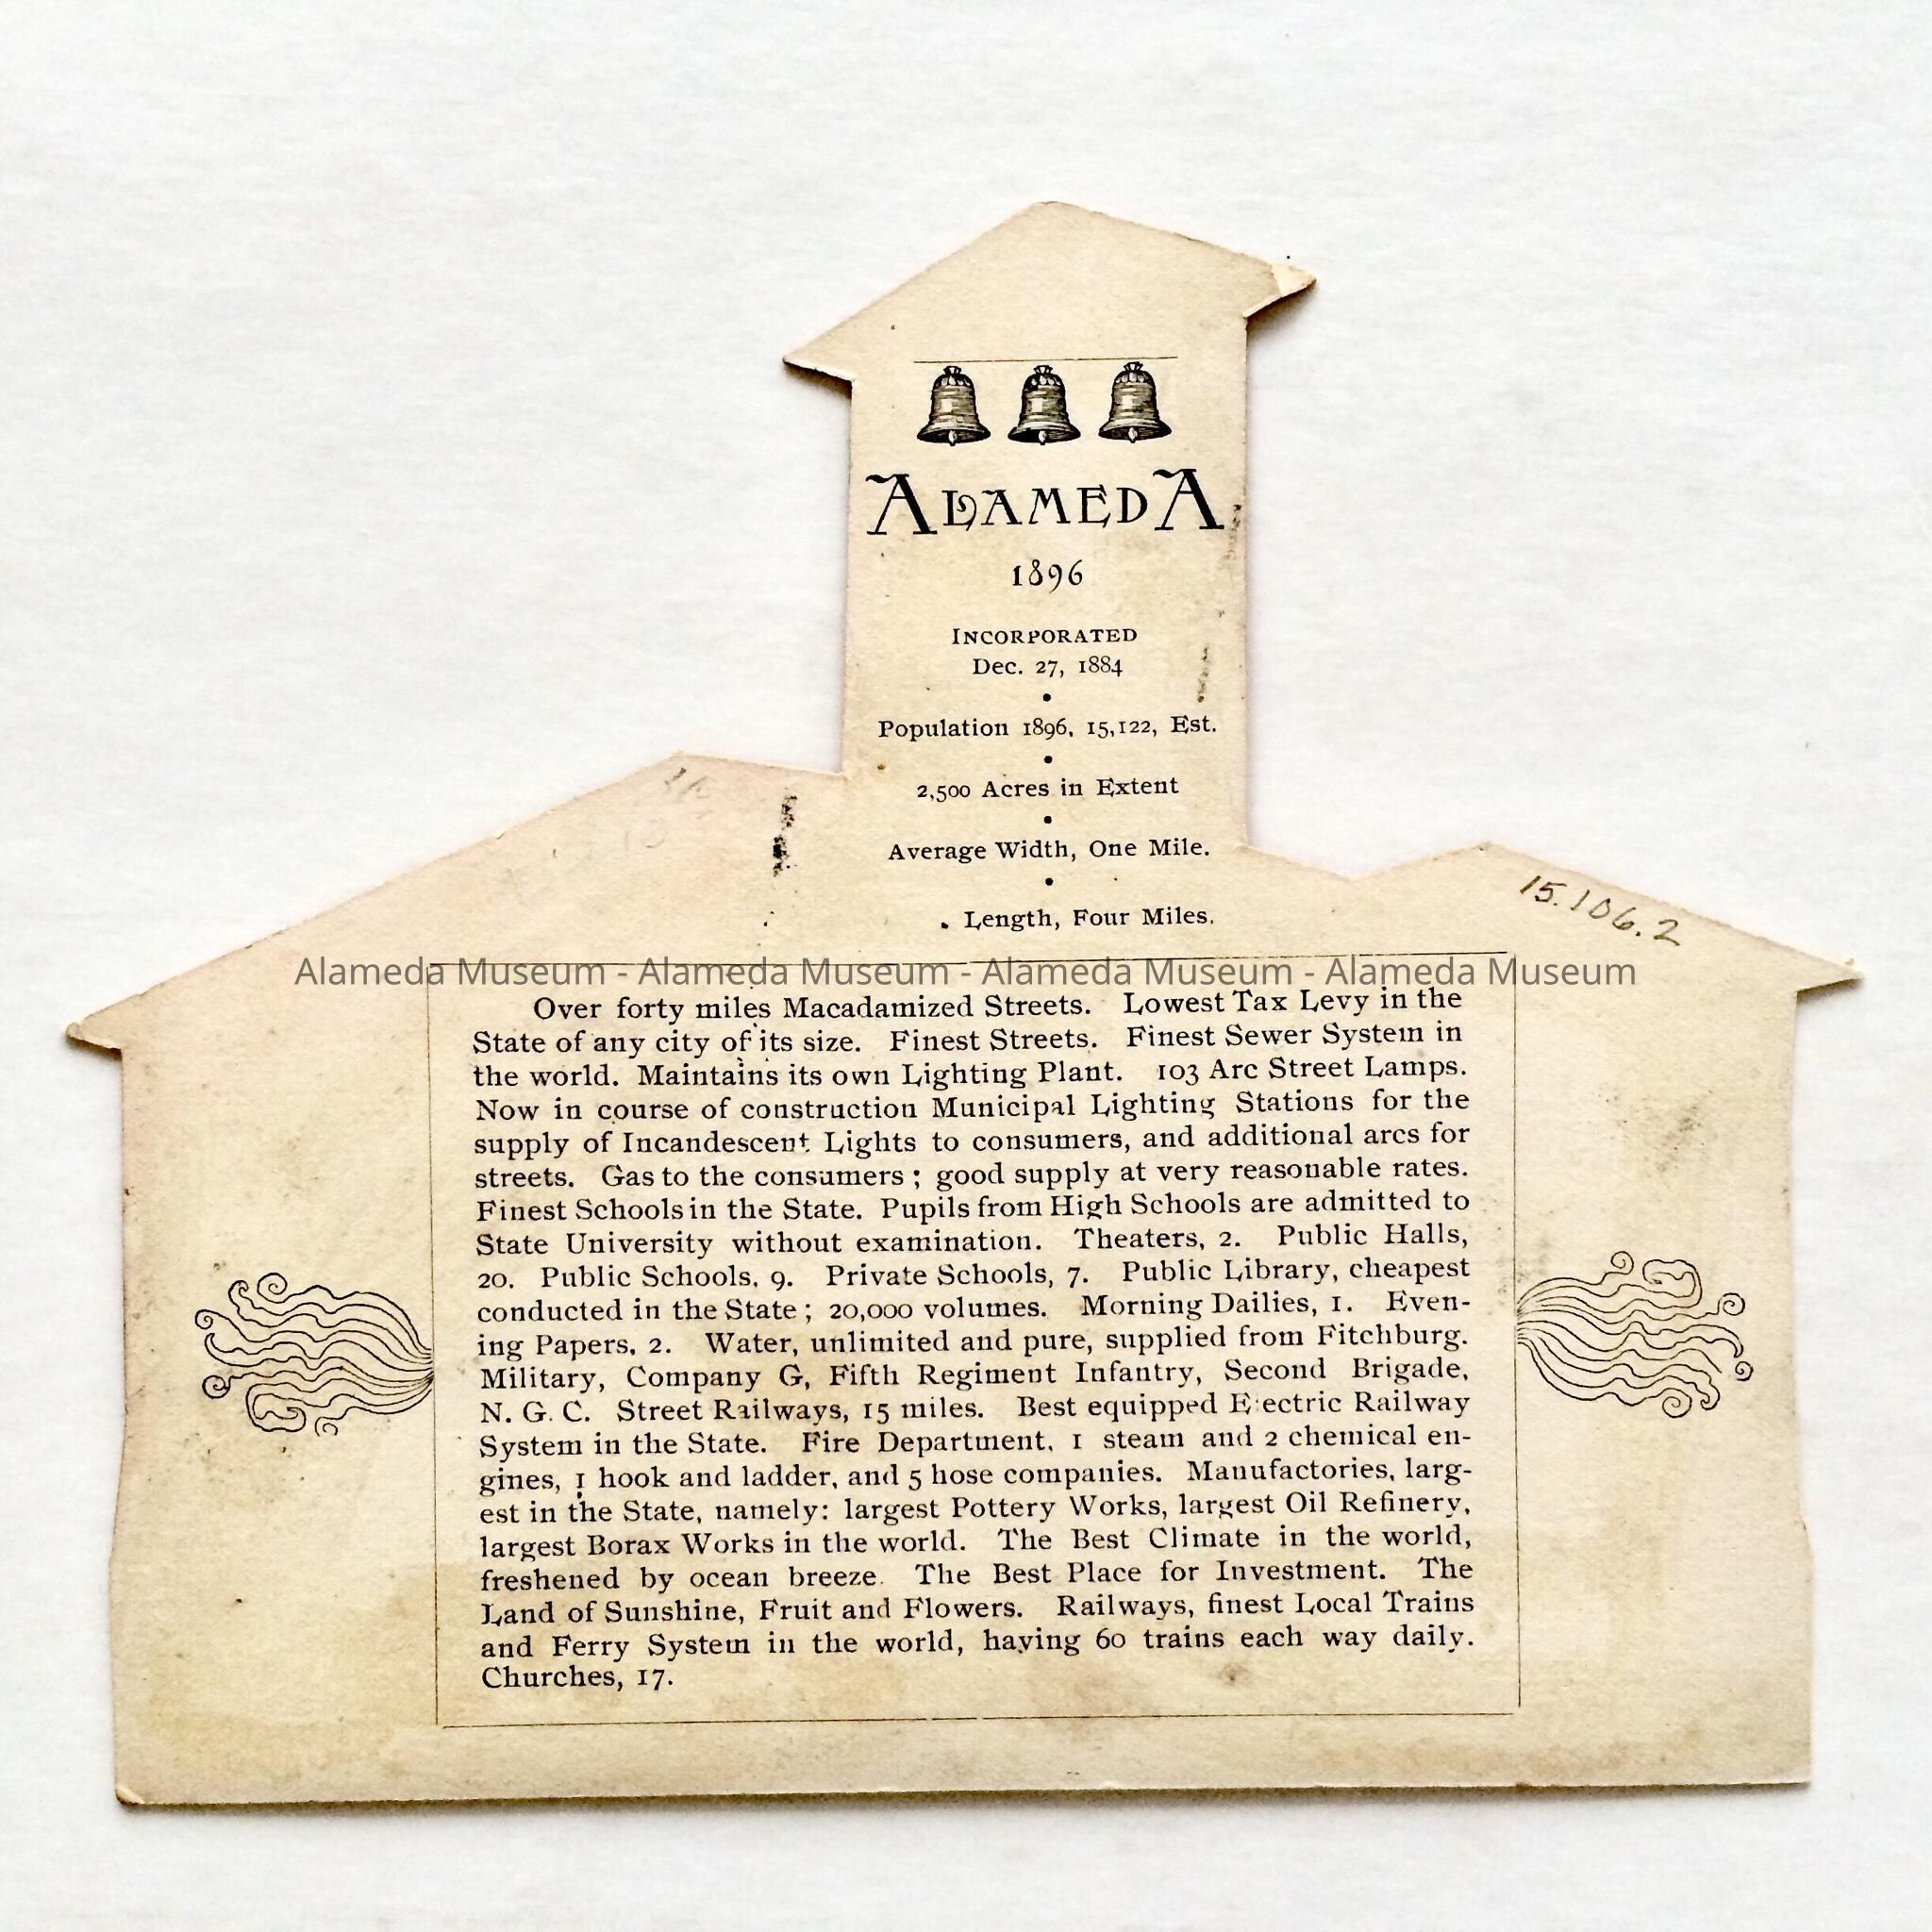 ALAMEDA
1896
INCORPORATED
Dec. 27, 1884
Population 1896, 15,122, Est.
2,500 Acres in Extent
Average Width, One Mile.
Length, Four Miles.
15.106.2
Alameda Museum - Alameda Museum - Alameda Museum - Alameda Museum
Over forty miles Macadamized Streets. Lowest Tax Levy in the
State of any city of its size. Finest Streets. Finest Sewer System in
the world. Maintains its own Lighting Plant. 103 Arc Street Lamps.
Now in course of construction Municipal Lighting Stations for the
supply of Incandescent Lights to consumers, and additional arcs for
streets. Gas to the consumers; good supply at very reasonable rates.
Finest Schools in the State. Pupils from High Schools are admitted to
State University without examination. Theaters, 2. Public Halls,
20. Public Schools, 9. Private Schools, 7. Public Library, cheapest
conducted in the State; 20,000 volumes. Morning Dailies, 1. Even-
ing Papers, 2. Water, unlimited and pure, supplied from Fitchburg.
Military, Company G, Fifth Regiment Infantry, Second Brigade,
N. G. C. Street Railways, 15 miles. Best equipped Electric Railway
System in the State. Fire Department, 1 steam and 2 chemical en-
gines, 1 hook and ladder, and 5 hose companies. Manufactories, larg-
est in the State, namely: largest Pottery Works, largest Oil Refinery,
largest Borax Works in the world. The Best Climate in the world,
freshened by ocean breeze. The Best Place for Investment. The
Land of Sunshine, Fruit and Flowers. Railways, finest Local Trains
and Ferry System in the world, having 60 trains each way daily.
Churches, 17.